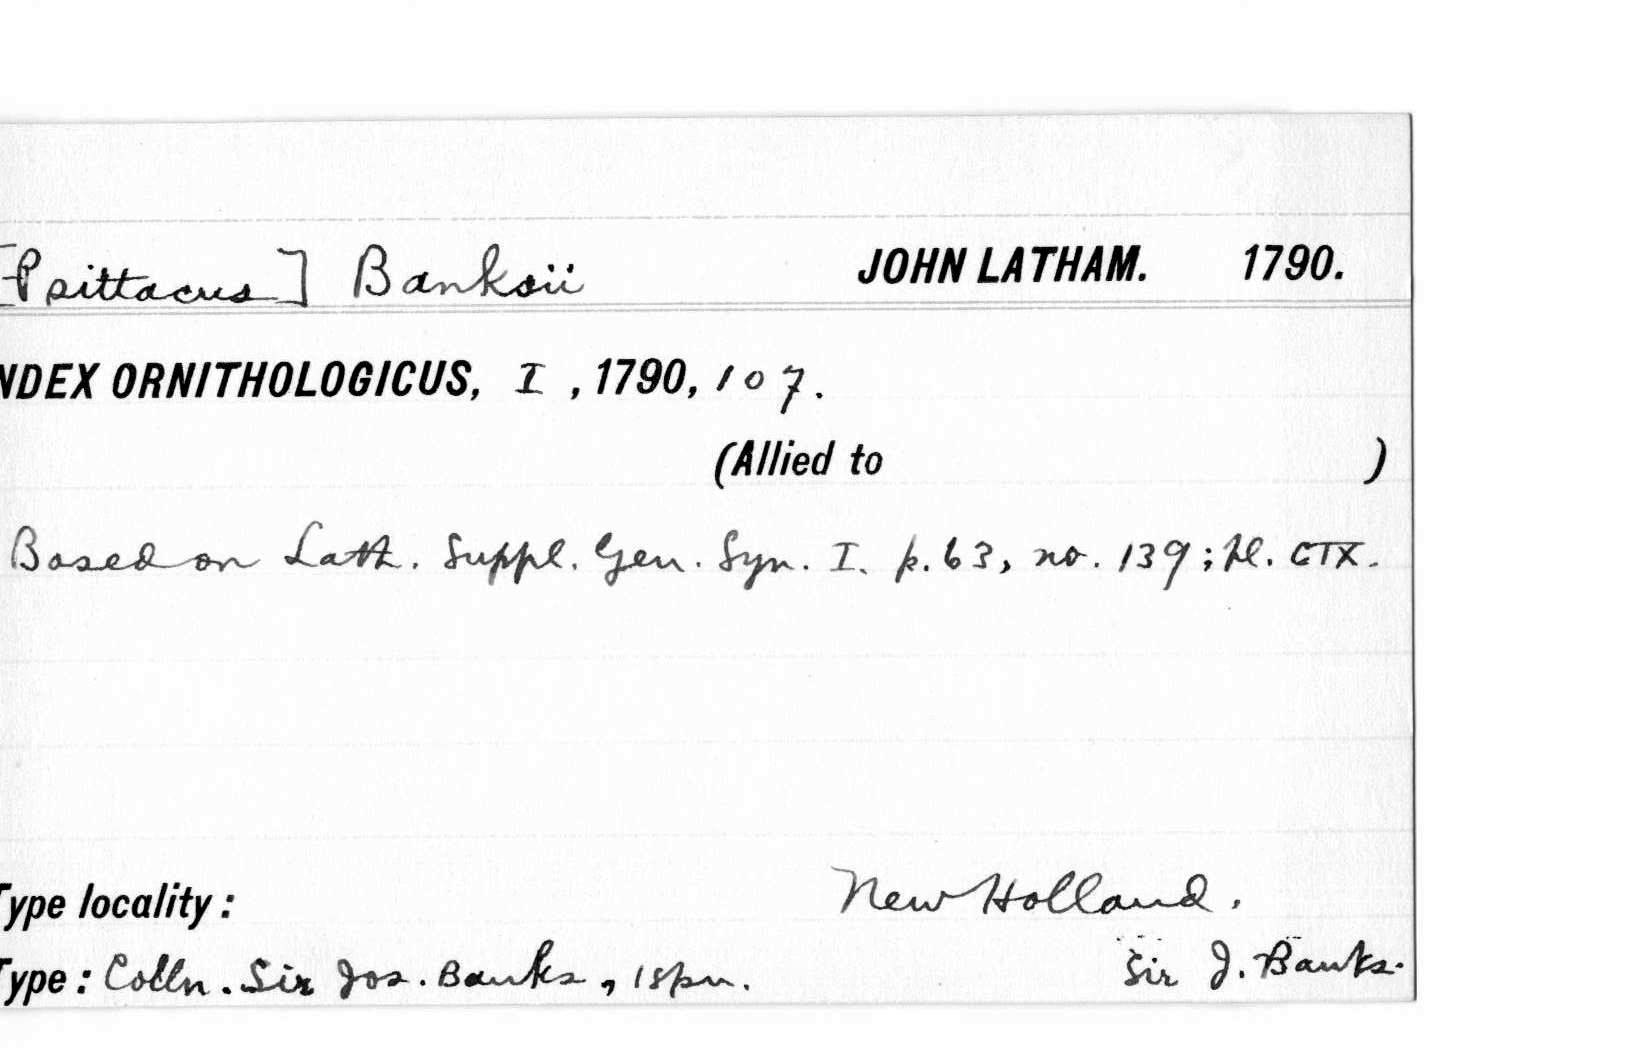 [Psittacus] Banksii JOHN LATHAM. 1790.
NDEX ORNITHOLOGICUS, I, 1790, 107.
(Allied to )
Based on Lath. Suppl. Gen. Syn. I. p. 63, no. 139; pl. CIX.
Type locality: New Holland.
Type: Colln. Sir Jos. Banks, 1 spn. Sir J. Banks.